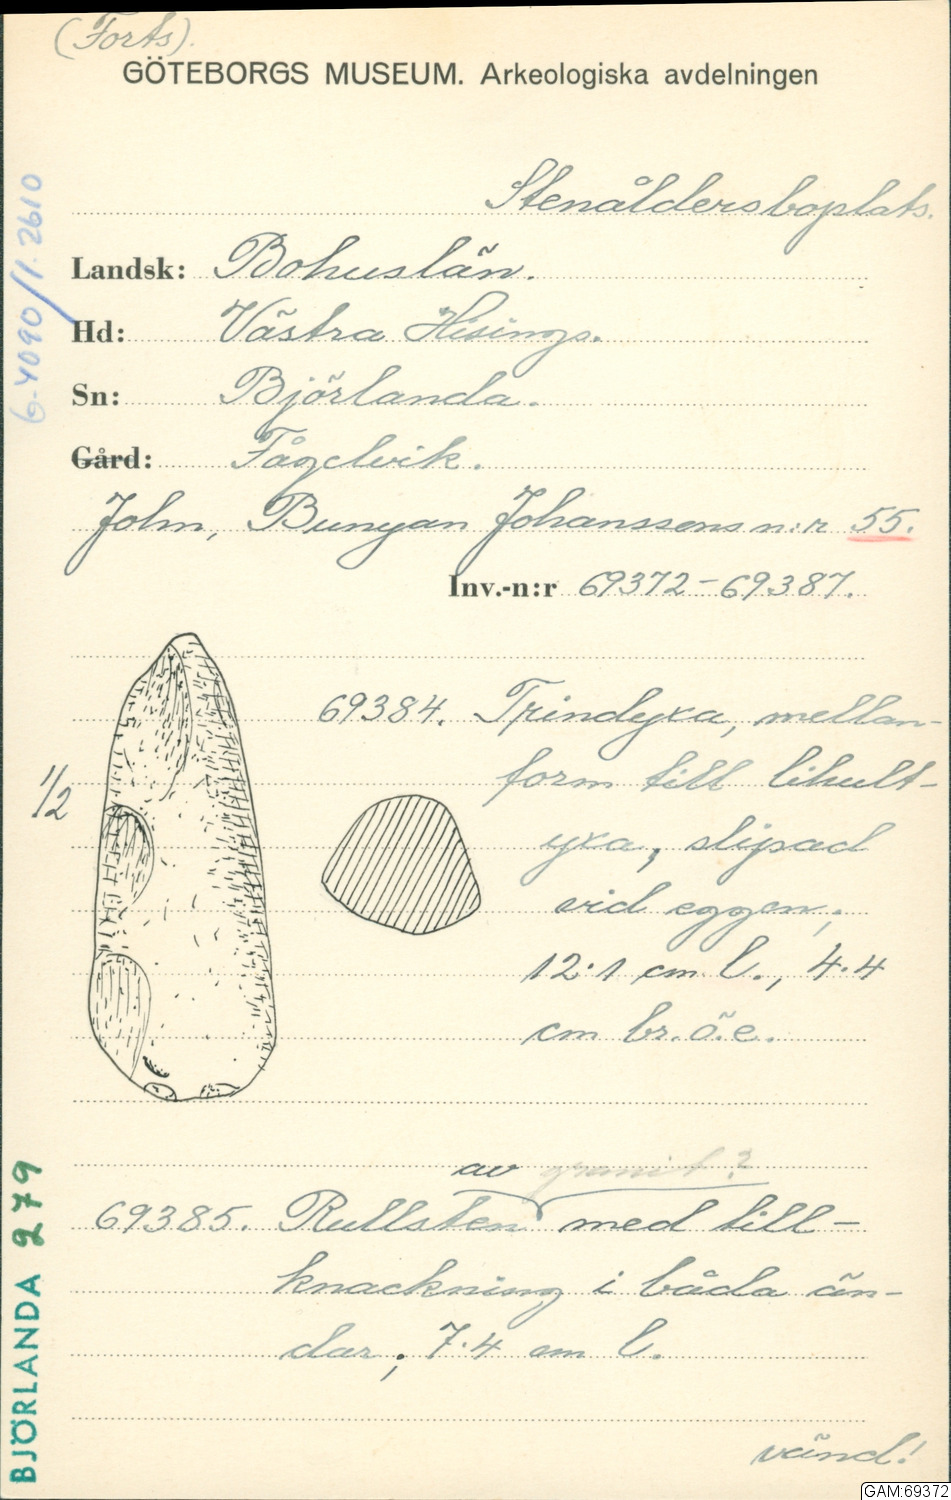 (Forts).
GÖTEBORGS MUSEUM. Arkeologiska avdelningen
Stenåldersboplats.
Landsk: Bohuslän.
Hd: Västra Hisings.
Sn: Björlanda.
Gård: Fågelvik.
John, Bunyan Johanssons n:r 55.
Inv.-n:r 69372-69387.
69384. Trindyxa, mellan-
form till lihult-
yxa, slipad
vid eggen;
12.1 cm l., 4.4
cm br. ö.e.
1/2
av granit?
69385. Rullsten med till-
knackning i båda än-
dar; 7.4 cm l.
vänd!
G-4090/1-2610
BJÖRLANDA 279
GAM:69372